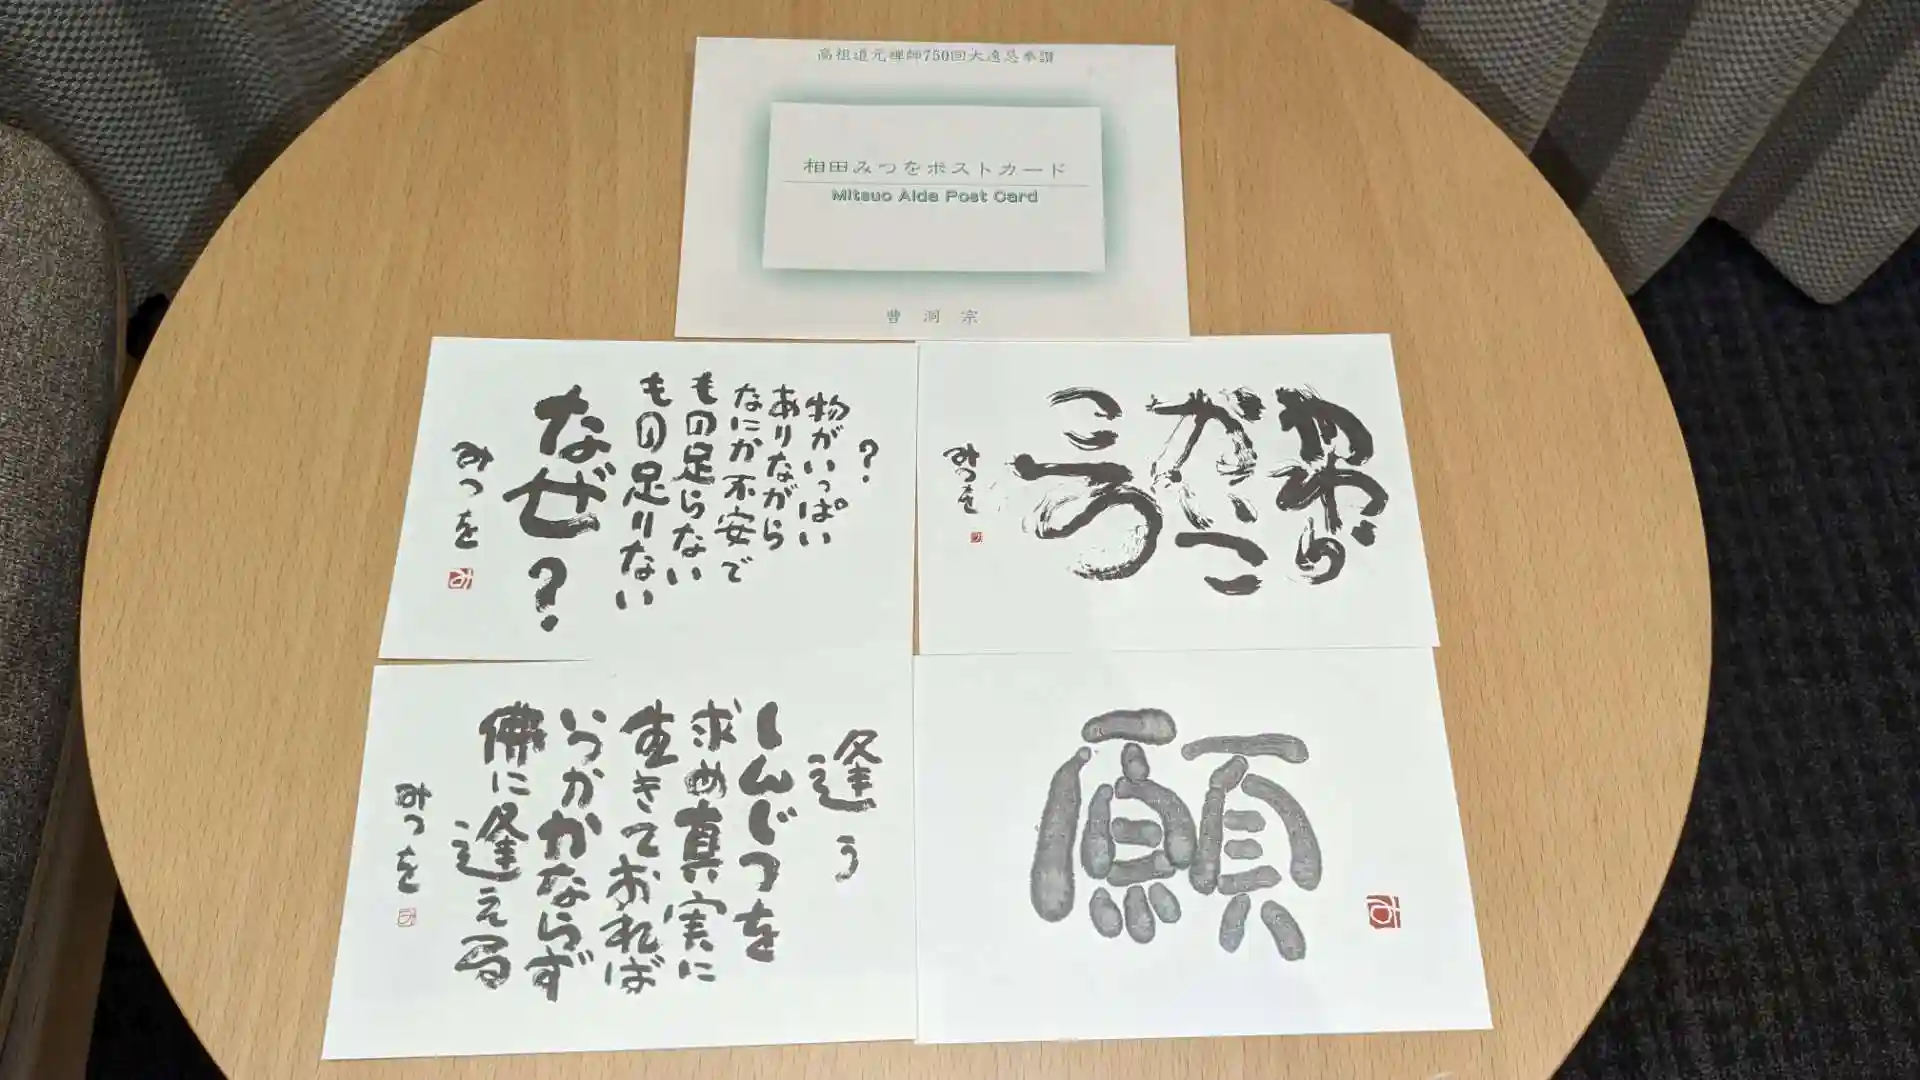 高祖道元禅師750回大遠忌奉讃
相田みつをポストカード
Mitsuo Aida Post Card
曹洞宗
？
物がいっぱい
ありながら
なにか不安で
もの足らない
もの足りない
なぜ？
みつを
み
やわら
かいこ
ころ
みつを
逢う
しんじつを
求め真実に
生きておれば
いつかかならず
佛に逢える
みつを
願